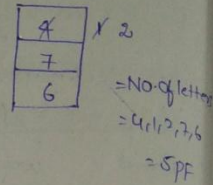 4 1 2
7
6
=No. of letter
=4,1,2,7,6
=5PF